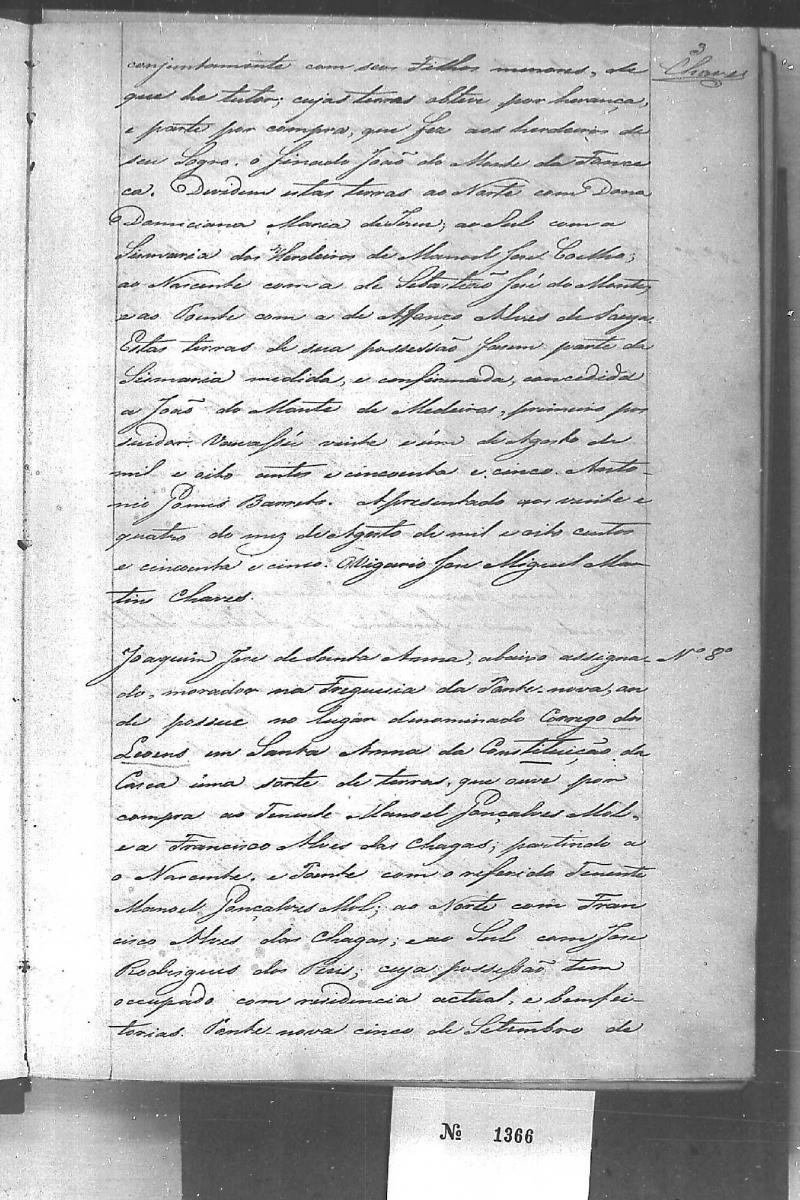 3
Chaves
conjuntamente com seos Filhos menores, de
que he tutor; cujas terras obteve por herança,
e parte por compra, que fez aos herdeiros de
seu Sogro o finado João do Monte da Fonce
ca. Devidem estas terras ao Norte com Dona
Domiciana Maria de ao Sul com a
Sismaria dos Herdeiros de Manoel José Coelho;
ao Nascente com a de Sebastião José do Monte,
e ao Poente com a de Affonço Alves de
Estas terras de sua possessão fasem parte da
Sismaria medida, e confirmada, concedida
a João do Monte de Medeiros, primeiro pos
suidor. vinte e úm de Agosto de
mil e oito centos e cincoenta e cinco. Anto-
nio Gomes Barreto. Apresentado aos vinte e
quatro do mez de Agosto de mil e oito centos
e cincoenta e cinco. O Vigario José Miguel Mar-
tins Chaves.
Joaquim José de Santa Anna, abaixo assigna-
Nº 8º
do, morador na Freguesia da Ponte-nova, on
de possue no lugar denominado Corrego dos
em Santa Anna da Constituição da
Casca úma sorte de terras, que ouve por
compra ao Tenente Manoel Gonçalves Mol,
e a Francisco Alves das Chagas; partindo a
o Nascente, e Poente com o referido Tenente
Manoel Gonçalves Mol; ao Norte com Fran
cisco Alves das Chagas; e ao Sul com José
Rodrigues dos Reis; cuja possessão tem
occupado com residencia actual, e bemfei-
torias. Ponte-nova cinco de Setembro de
Nº 1366